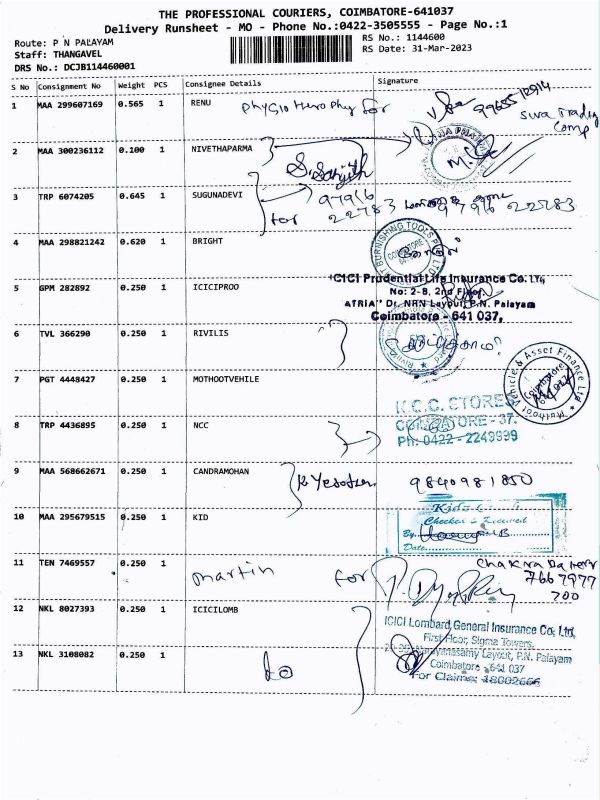 THE PROFESSIONAL COURIERS, COIMBATORE-641037
Delivery Runsheet - MO - Phone No.:0422-3505555 - Page No.:1
Route: P N PALAYAM
RS No.: 1144600
Staff: THANGAVEL
RS Date: 31-Mar-2023
DRS No.: DCJB114460001
S No Consignment No Weight PCS Consignee Details Signature
1 MAA 299607169 0.565 1 RENU Physio therophy for
Siva Trading
Comp
2 MAA 300236112 0.100 1 NIVETHAPARMA
3 TRP 6074205 0.645 1 SUGUNADEVI 97916
for 22783 97916 22783
4 MAA 298821242 0.620 1 BRIGHT
BURNISHING TOOLS
COIMBATORE
5 GPM 282892 0.250 1 ICICIPROO
ICICI Prudential Life Insurance Co. Ltd,
No: 2-B, 2nd Floor,
ATRIA" Dr. NRN Layout, P.N. Palayam
Coimbatore - 641 037,
6 TVL 366290 0.250 1 RIVILIS
7 PGT 4448427 0.250 1 MOTHOOTVEHILE
Muthoot Vehicle & Asset Finance Ltd
Coimbatore
8 TRP 4436895 0.250 1 NCC
STORES
COIMBATORE - 37.
Ph: 0422 - 2249999
9 MAA 568662671 0.250 1 CANDRAMOHAN 9840981850
10 MAA 295679515 0.250 1 KID
Checked & Received
By
Date
11 TEN 7469557 0.250 1 martin for
7667977
700
12 NKL 8027393 0.250 1 ICICILOMB
ICICI Lombard General Insurance Co. Ltd,
First Floor, Sigma Towers,
Layout, P.N. Palayam
13 NKL 3108082 0.250 1 to
Coimbatore - 641 037
For Claims: 18002666